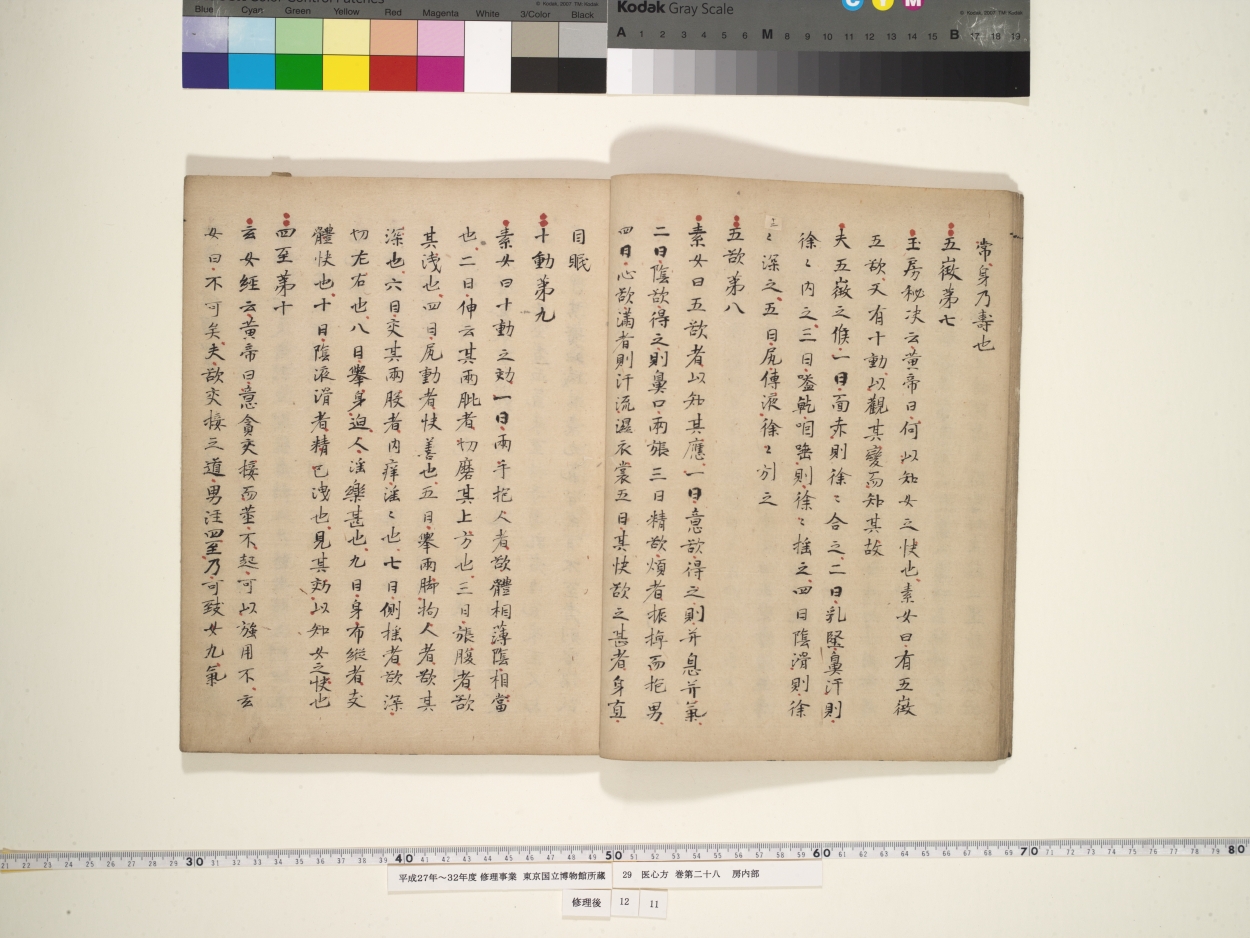 Blue Cyan Green Yellow Red Magenta White 3/Color Black
© Kodak, 2007 TM: Kodak
Kodak Gray Scale
C Y M
© Kodak, 2007 TM: Kodak
A 1 2 3 4 5 6 M 8 9 10 11 12 13 14 15 B 17 18 19
常身乃壽也
五徴第七
玉房秘决云黄帝曰何以知女之快也素女曰有五徴
五欲又有十動以觀其變而知其故
夫五徴之候一曰面赤則徐〻合之二曰乳堅鼻汗則
徐〻内之三曰嗌乾咽唾則徐〻揺之四曰陰滑則徐
〻深之五曰尻傳液徐〻引之
五欲第八
素女曰五欲者以知其應一曰意欲得之則并息并氣
二曰陰欲得之則鼻口兩張三曰精欲煩者振掉而抱男
四曰心欲滿者則汗流濕衣裳五曰其快欲之甚者身直
目眠
十動第九
素女曰十動之効一曰兩手抱人者欲體相薄陰相當
也二曰伸云其兩肶者切磨其上方也三曰張腹者欲
其洩也四曰尻動者快善也五曰擧兩脚拘人者欲其
深也六曰交其兩股者内痒淫〻也七曰側揺者欲深
切左右也八曰擧身迫人淫樂甚也九曰身布縱者支
體快也十曰陰液滑者精已洩也見其効以知女之快也
四至第十
玄女經云黄帝曰意貪交接而莖不起可以強用不玄
女曰不可矣夫欲交接之道男注四至乃可致女九氣
30 40 50 60 70 80
平成27年～32年度 修理事業 東京国立博物館所蔵
29 医心方 巻第二十八 房内部
修理後 12 11